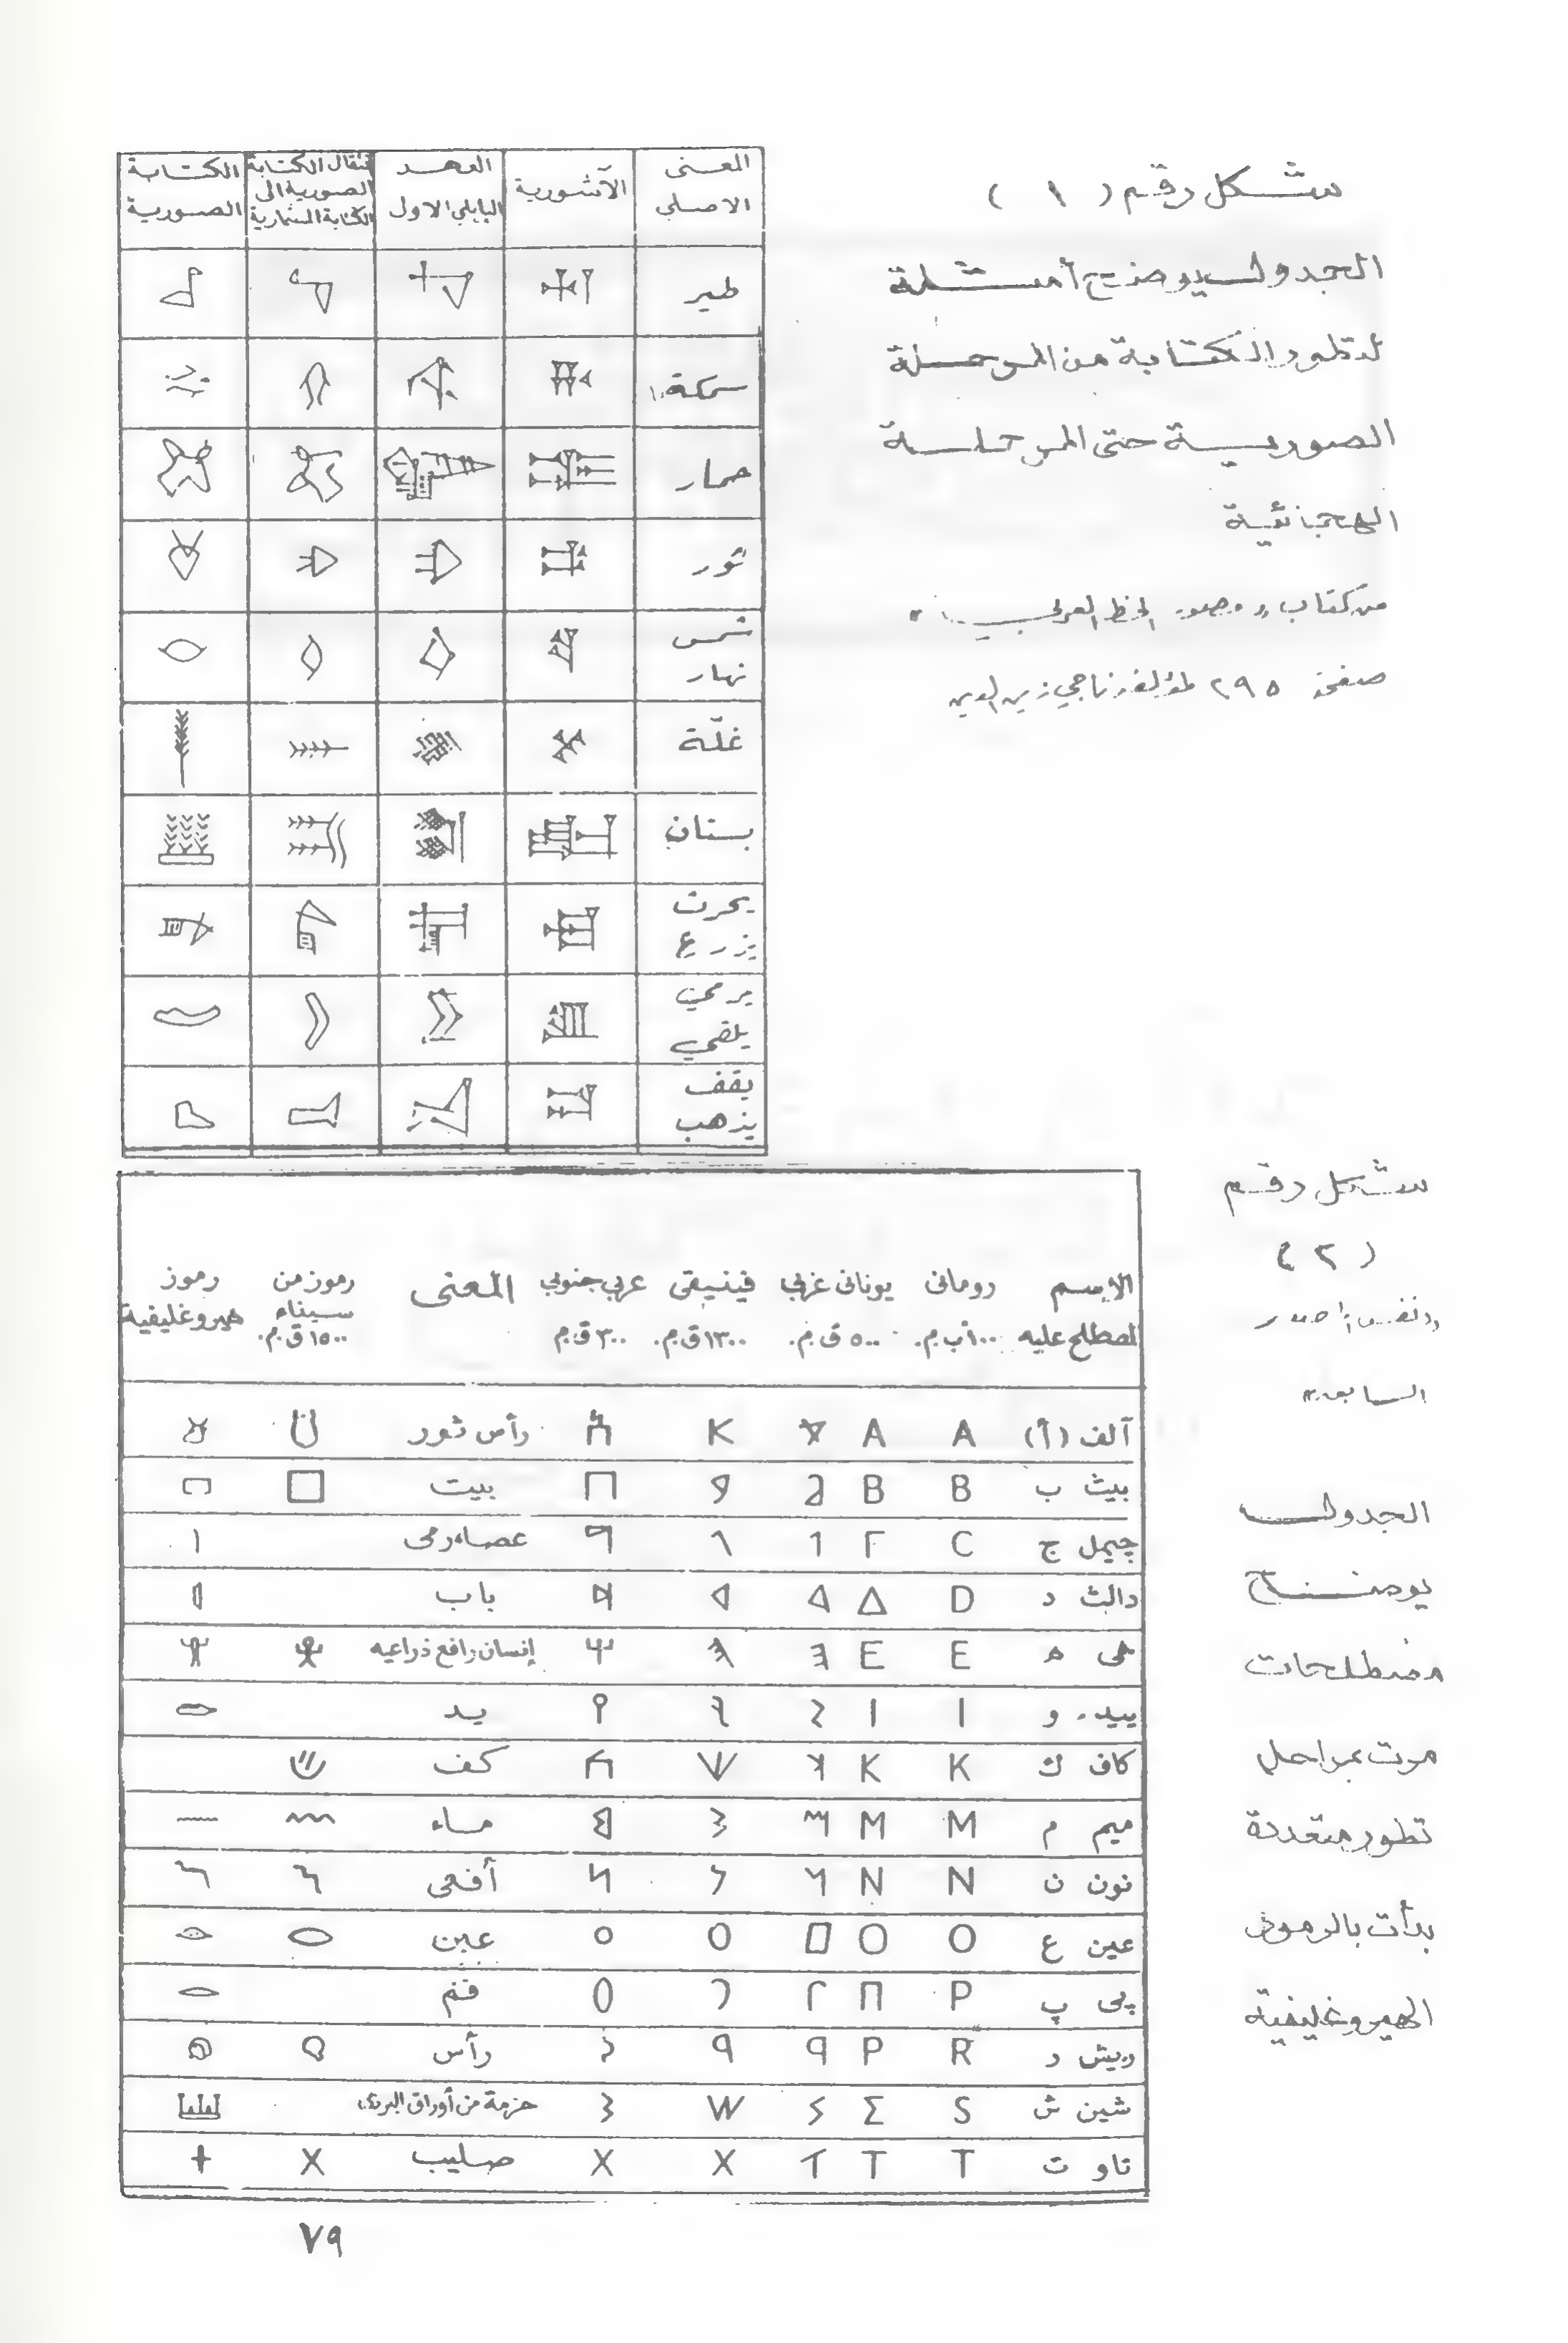 شكل رقم ( ١ )
الجدول يوضح أمثلة
لتطور الكتابة من المرحلة
الصورية حتى المرحلة
الهجائية
من كتاب « مصور الخط العربي »
صفحة ٢٩٥ لمؤلفه ناجي زين الدين
المعنى الاصلي | الآشورية | العهد البابلي الاول | انتقال الكتابة الصورية الى الكتابة المسمارية | الكتابة الصورية
طير
سمكة
حمار
ثور
شمس
نهار
غلّة
بستان
يحرث
يزرع
يرمي
يلقي
يقف
يذهب
شكل رقم
( ٢ )
« نفس المصدر
السابق »
الجدول
يوضح
مصطلحات
مرت بمراحل
تطور متعددة
بدأت بالرموز
الهيروغليفية
الإسم | رومانى | يونانى غربي | فينيقى | عربي جنوبي | المعنى | رموز من | رموز
المصطلح عليه | ١٠٠ ب.م. | ٥٠٠ ق.م. | ١٣٠٠ ق.م. | ٣٠٠ ق.م | سيناء | هيروغليفية
١٥٠٠ ق.م.
آلف (أ) A A رأس ثور
بيث ب B B بيت
چيمل ج C Γ عصاه رمى
دالث د D Δ باب
هى ه E E إنسان رافع ذراعيه
ييد و I I يد
كاف ك K K كف
ميم م M M ماء
نون ن N N أفعى
عين ع O O عين
پى پ P Π فم
ريش ر R P رأس
شين ش S Σ حزمة من أوراق البردى
تاو ت T T صليب
٧٩